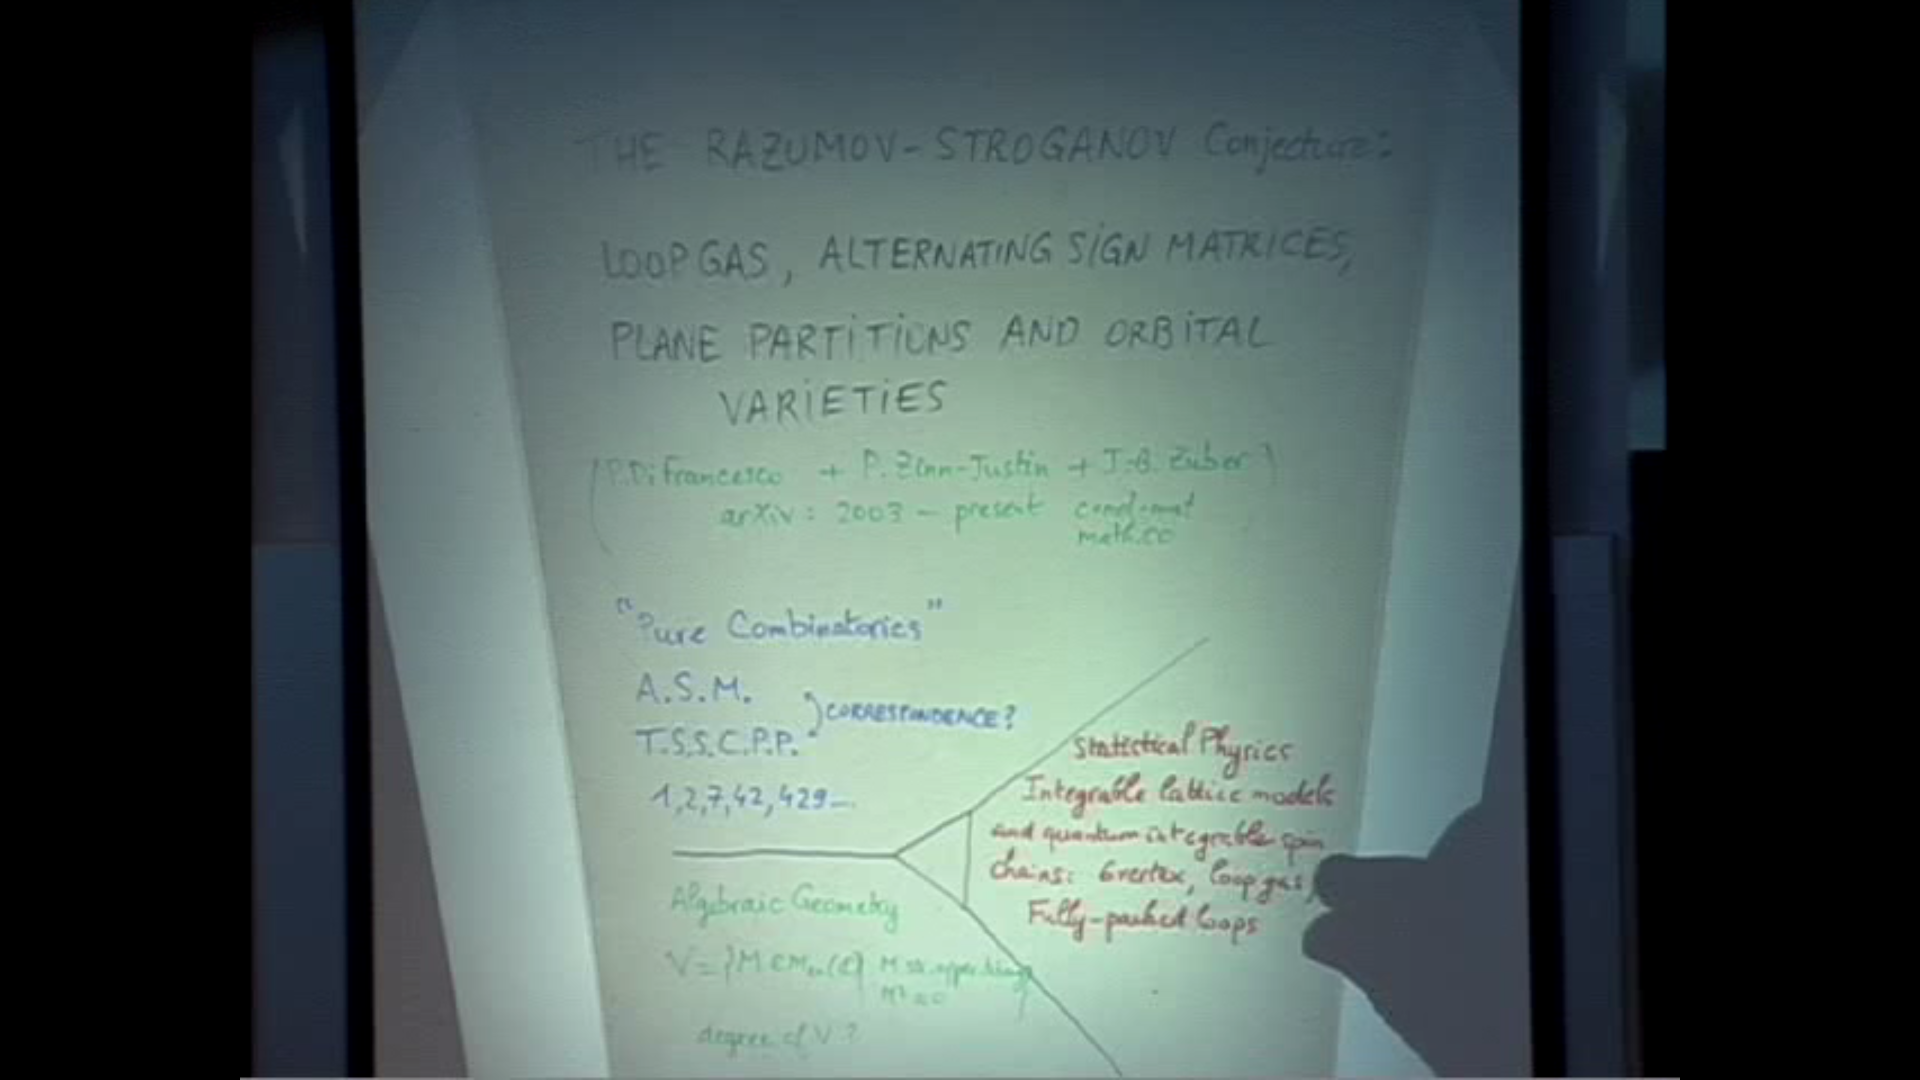 THE RAZUMOV-STROGANOV Conjecture:
LOOP GAS, ALTERNATING SIGN MATRICES,
PLANE PARTITIONS AND ORBITAL
VARIETIES
(P. Di Francesco + P. Zinn-Justin + J-B. Zuber)
arXiv: 2003 - present cond-mat
math.CO
"Pure Combinatorics"
A.S.M.
CORRESPONDENCE?
T.S.S.C.P.P.
1,2,7,42,429...
Statistical Physics
Integrable lattice models
and quantum integrable spin
chains: 6vertex, loop gas,
Fully-packed loops
Algebraic Geometry
V = {M ∈ M (C) M upper
M² = 0
degree of V?